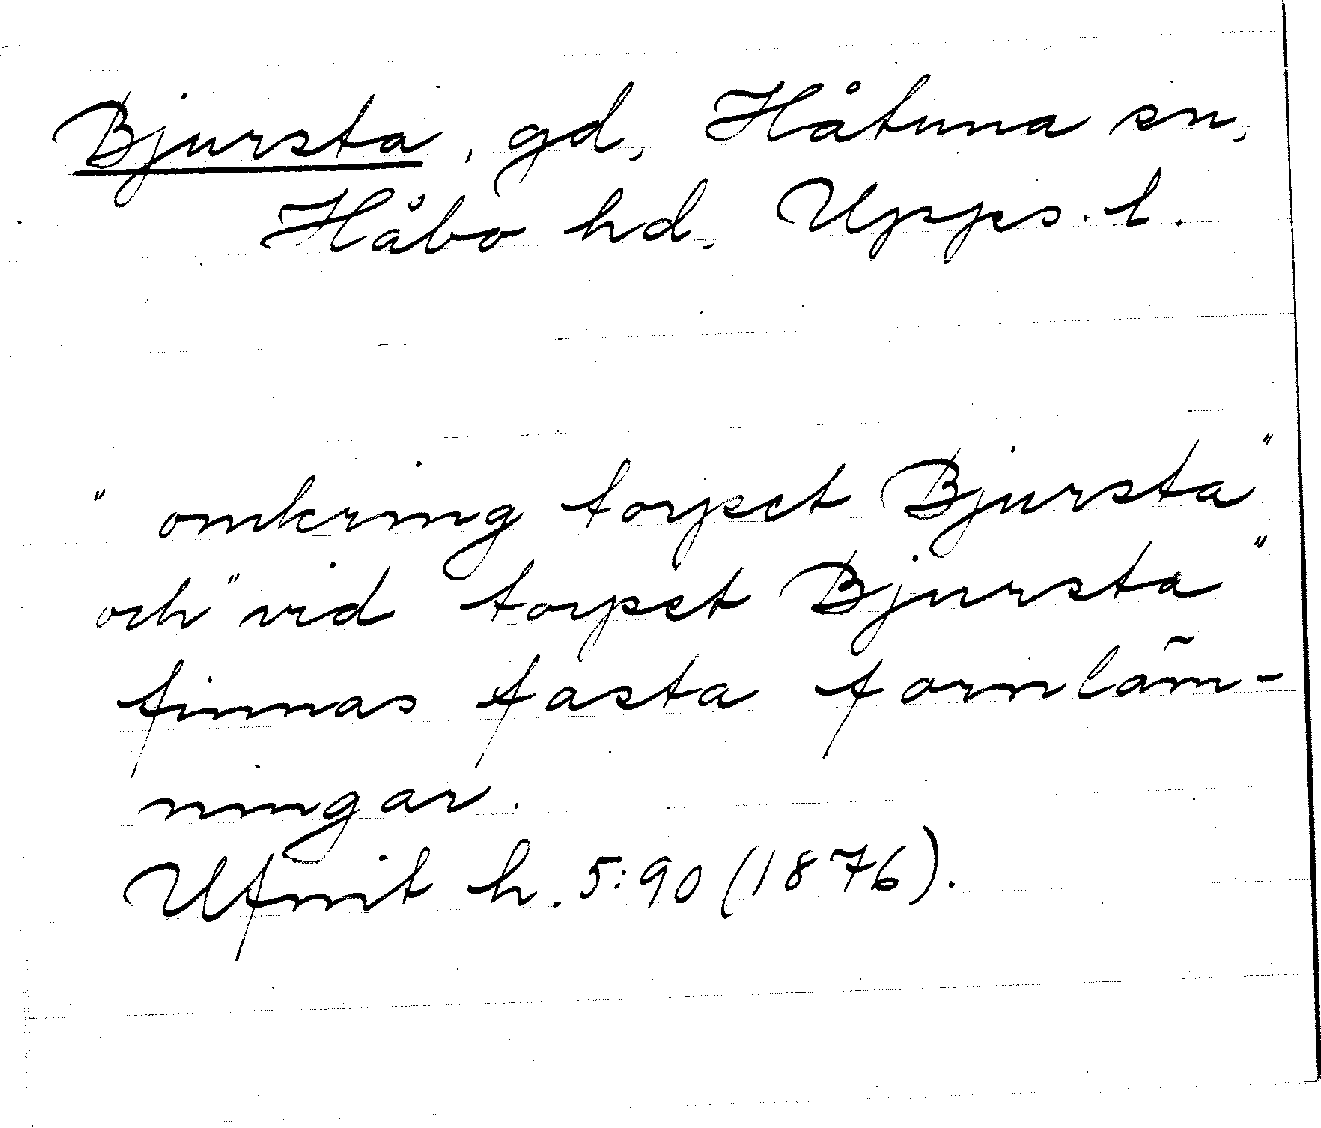 Bjursta, gd, Håtuna sn,
Håbo hd, Upps. l.
"omkring torpet Bjursta"
och "vid torpet Bjursta"
finnas fasta fornläm-
ningar.
Ufmt h. 5:90 (1876).